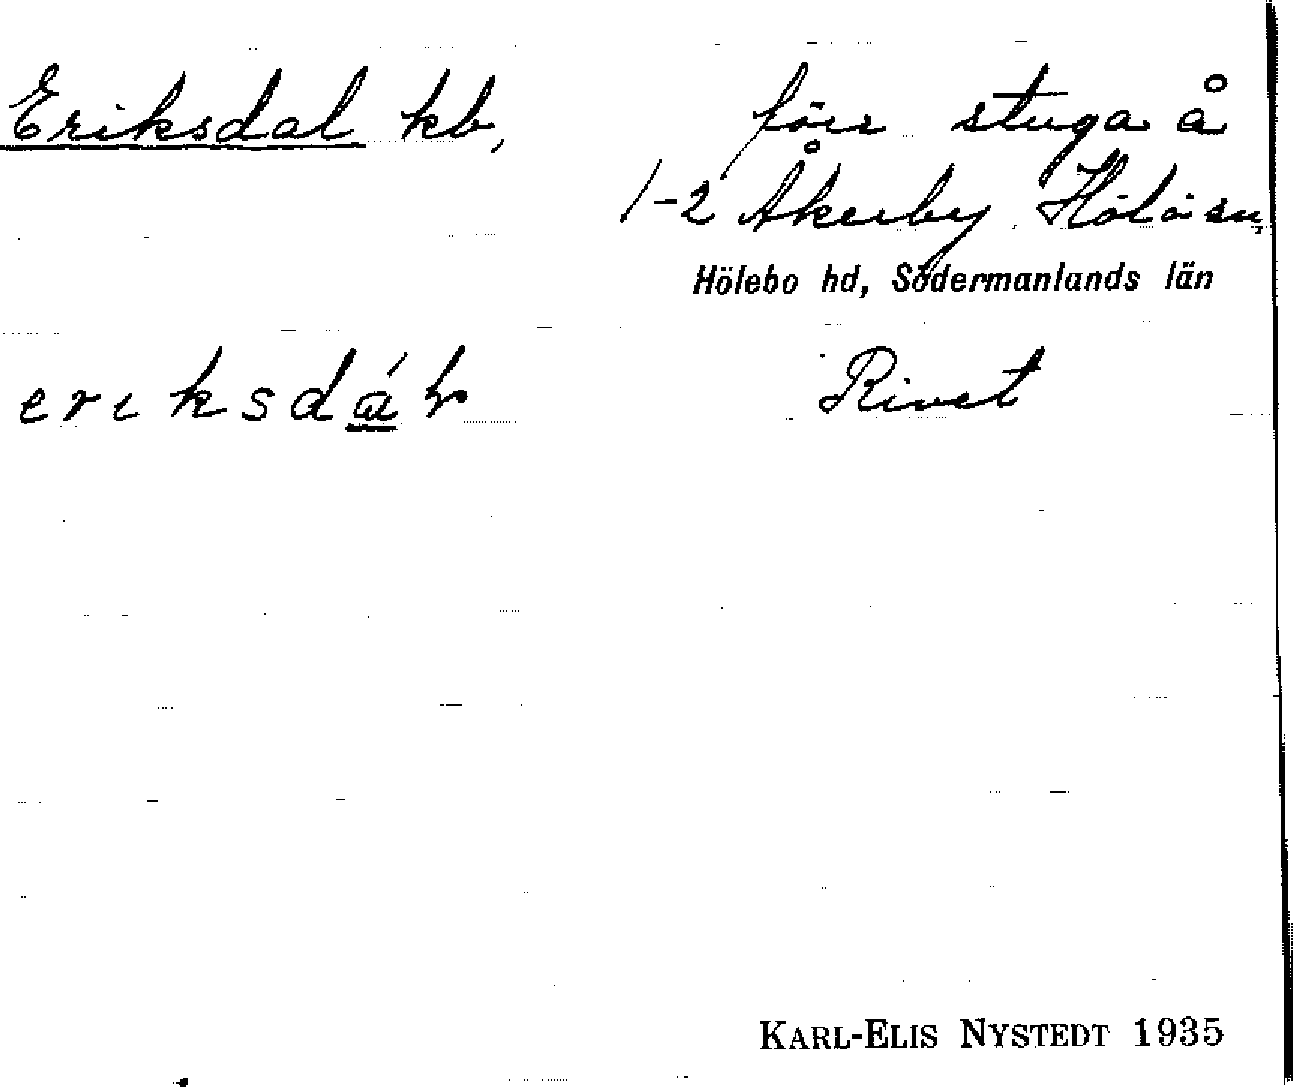 Eriksdal kb, förr stuga å
1-2 Åkerby Hölö sn,
Hölebo hd, Södermanlands län
eriksdá Rivet
KARL-ELIS NYSTEDT 1935